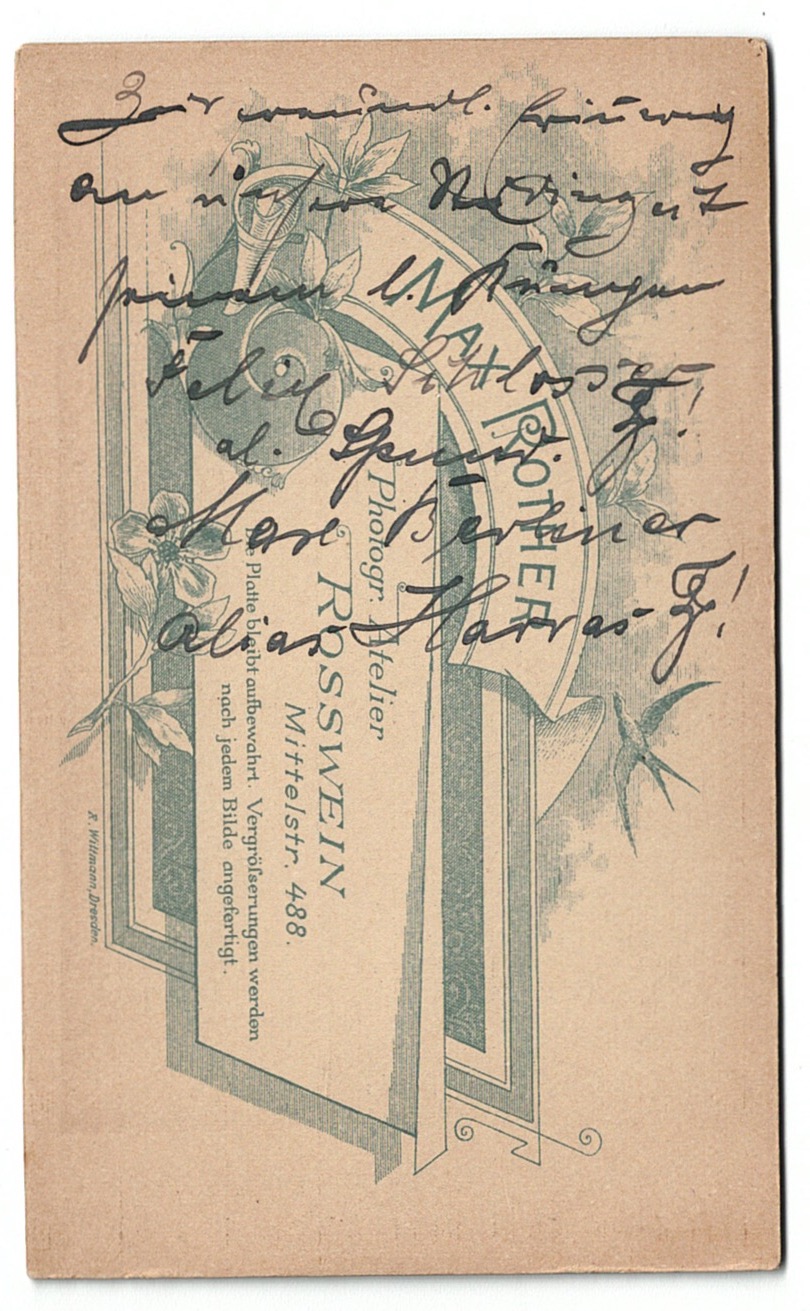 Zur freundl. Erinnerung
an unsere
seinem l. Jungen
Felix Schlosser Z!
al. Spund.
Max Berliner
alias Harras Z!
MAX ROTHER
Photogr. Atelier
ROSSWEIN
Mittelstr. 488.
Die Platte bleibt aufbewahrt. Vergröſserungen werden
nach jedem Bilde angefertigt.
R. Wittmann, Dresden.